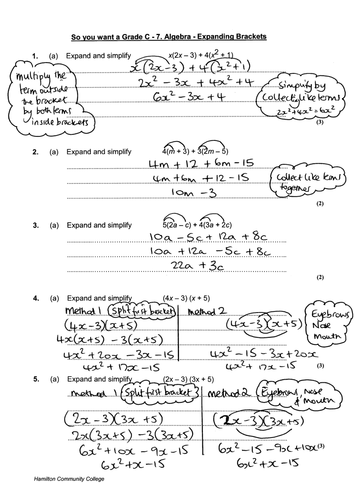 So you want a Grade C - 7. Algebra - Expanding Brackets
1. (a) Expand and simplify x(2x – 3) + 4(x² + 1)
x(2x-3) + 4(x²+1)
2x² - 3x + 4x² + 4
6x² - 3x + 4
multiply the
term outside
the bracket
by both terms
inside brackets
Simplify by
Collect like terms
2x²+4x²=6x²
(3)
2. (a) Expand and simplify 4(m + 3) + 3(2m – 5)
4m + 12 + 6m - 15
4m + 6m + 12 - 15
10m - 3
Collect like terms
together
(2)
3. (a) Expand and simplify 5(2a – c) + 4(3a + 2c)
10a - 5c + 12a + 8c
10a + 12a - 5c + 8c
22a + 3c
(2)
4. (a) Expand and simplify (4x – 3)(x + 5)
method 1 Split first bracket
(4x-3)(x+5)
4x(x+5) - 3(x+5)
4x² + 20x - 3x - 15
4x² + 17x - 15
method 2
(4x-3)(x+5)
4x² - 15 - 3x + 20x
4x² + 17x - 15
Eyebrows
Nose
Mouth
(3)
5. (a) Expand and simplify (2x – 3)(3x + 5)
method 1 Split first bracket
(2x-3)(3x+5)
2x(3x+5) - 3(3x+5)
6x² + 10x - 9x - 15
6x² + x - 15
method 2 Eyebrows, nose
& mouth
(2x-3)(3x+5)
6x² - 15 - 9x + 10x
(3)
6x² + x - 15
Hamilton Community College